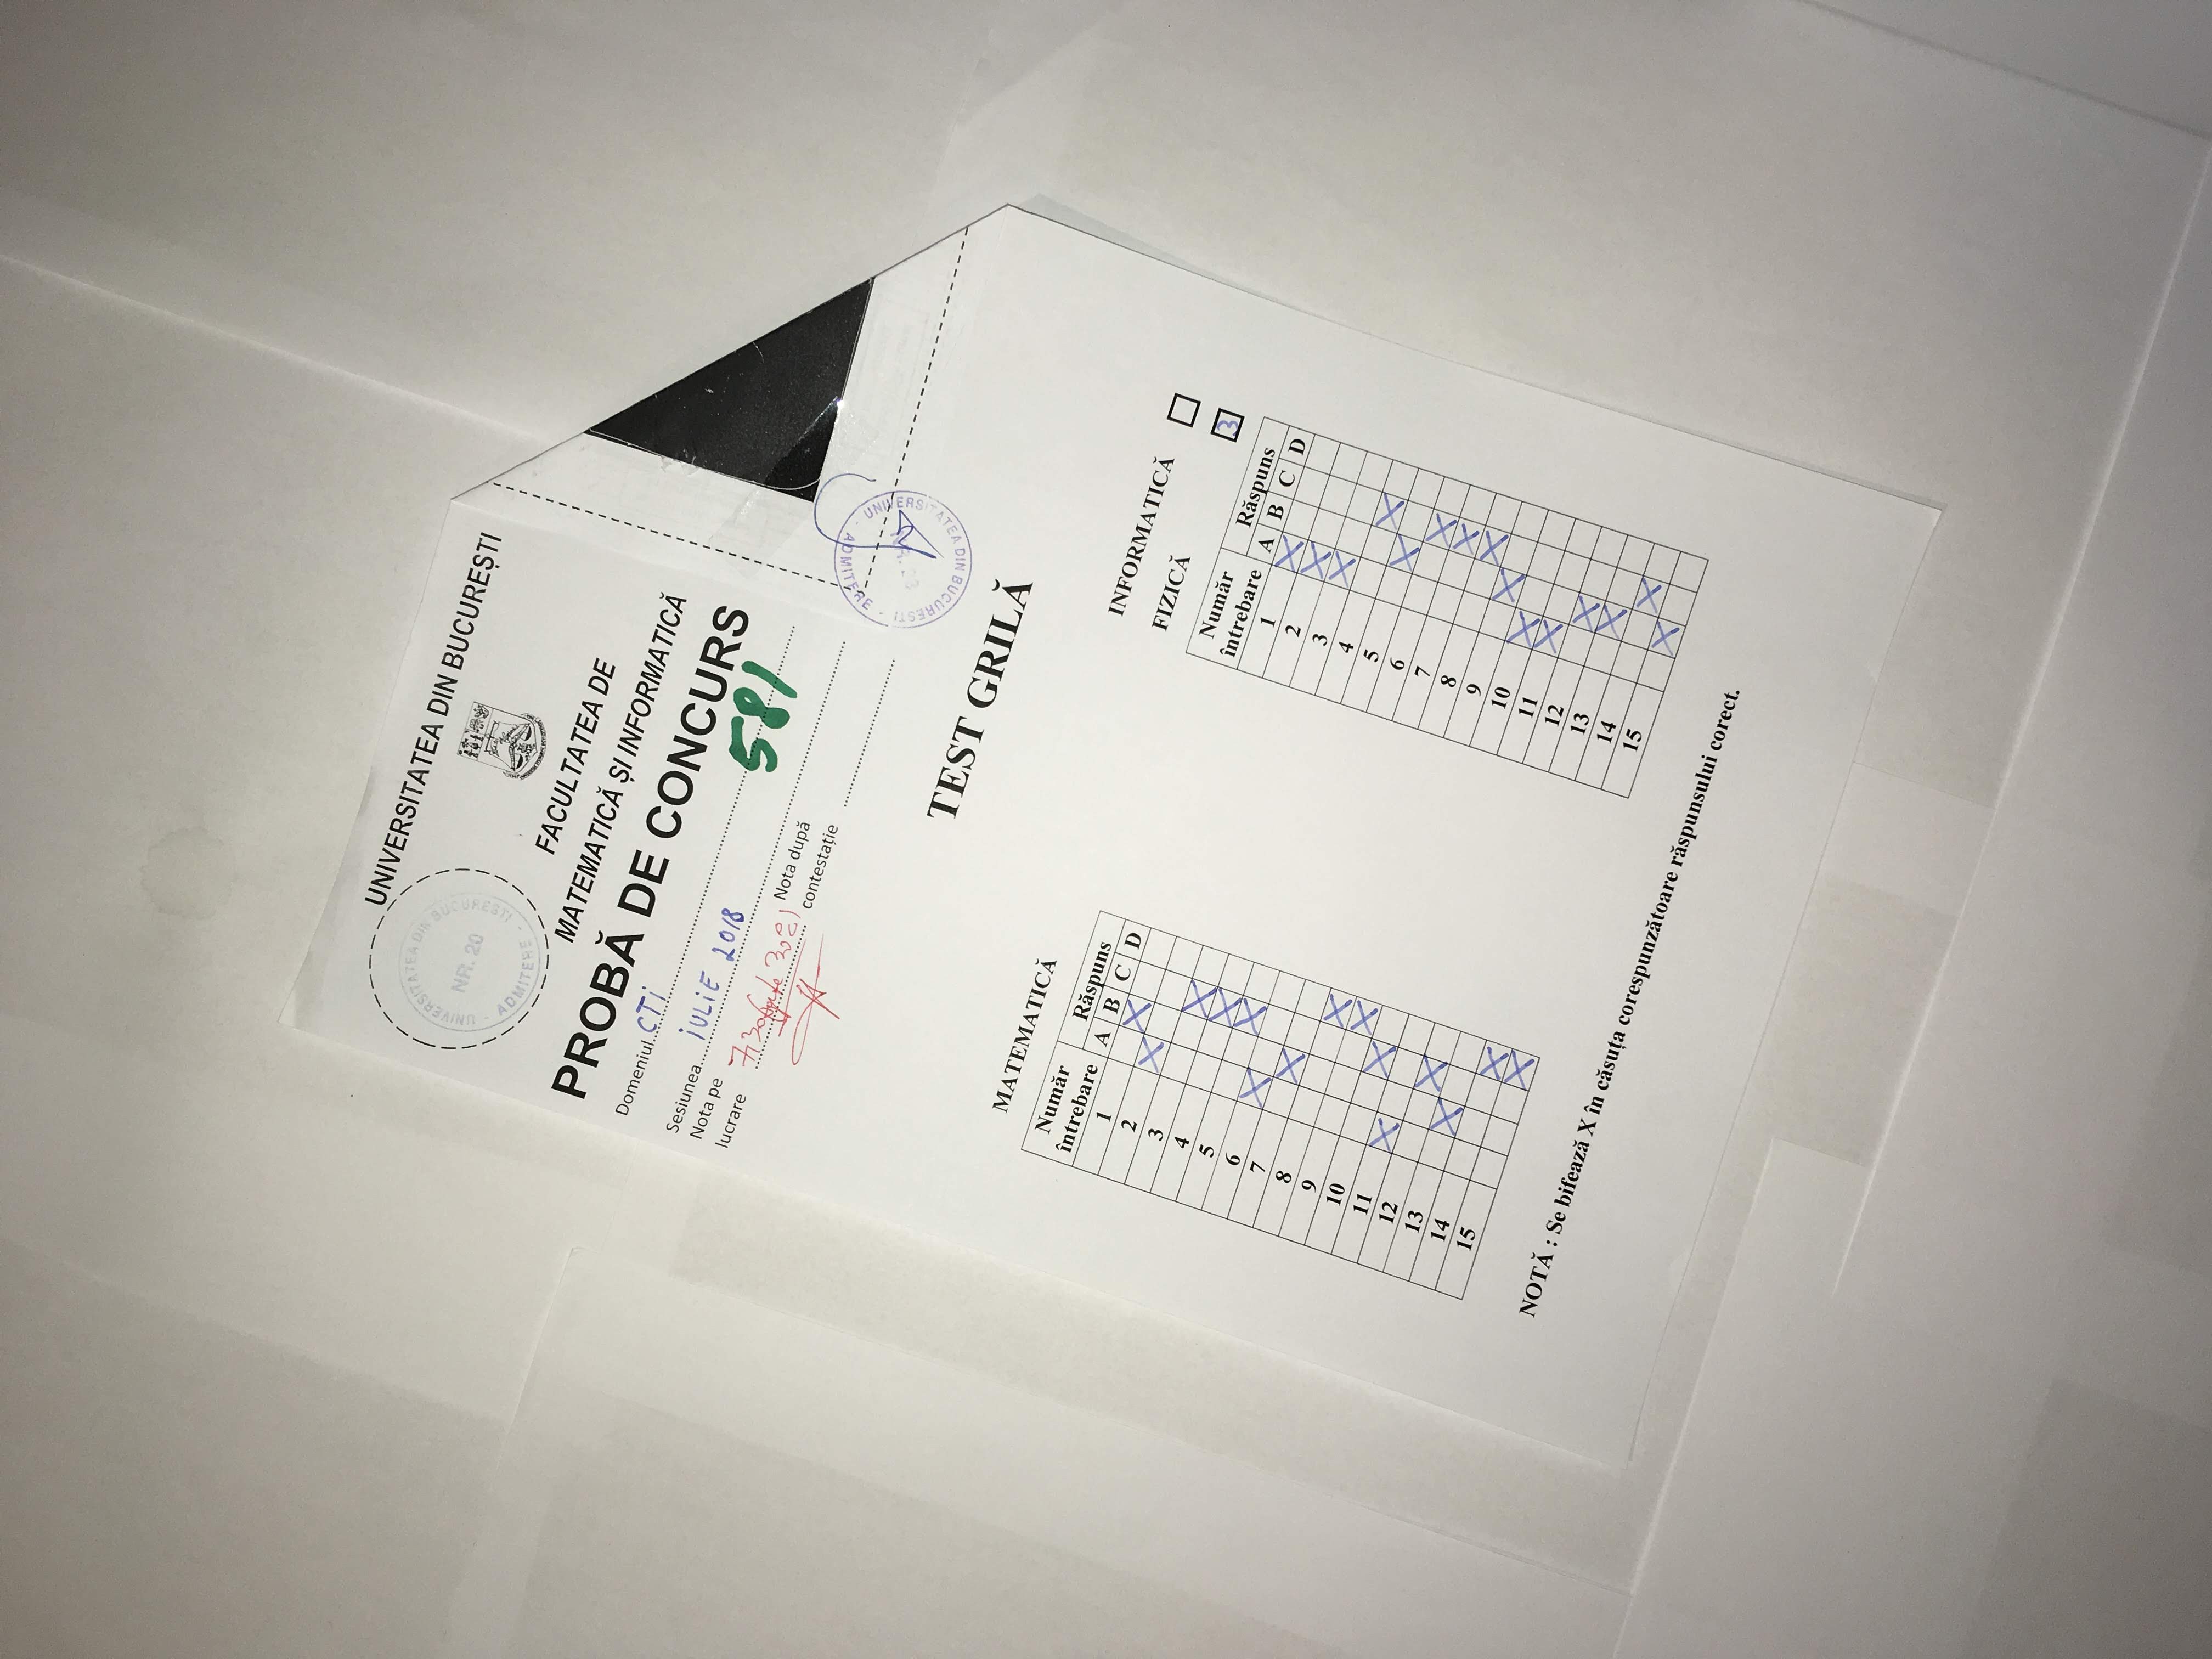 UNIVERSITATEA DIN BUCUREȘTI
UNIVERSITATEA DIN BUCURESTI
NR. 20
ADMITERE
FACULTATEA DE
MATEMATICĂ ȘI INFORMATICĂ
PROBĂ DE CONCURS
Domeniul CTi
Sesiunea iULiE 2018
581
Nota pe
lucrare 7,30 (șapte 30%)
Nota după
contestație
UNIVERSITATEA DIN BUCURESTI
ADMITERE
TEST GRILĂ
MATEMATICĂ
Număr
întrebare
Răspuns
A B C D
1 X
2 X
3 X
4 X
5 X
6 X
7 X
8 X
9 X
10 X
11 X
12 X
13 X
14 X
15 X
INFORMATICĂ
FIZICĂ 3
Număr
întrebare
Răspuns
A B C D
1 X
2 X
3 X
4 X
5 X
6 X
7 X
8 X
9 X
10 X
11 X
12 X
13 X
14 X
15 X
NOTĂ : Se bifează X în căsuța corespunzătoare răspunsului corect.